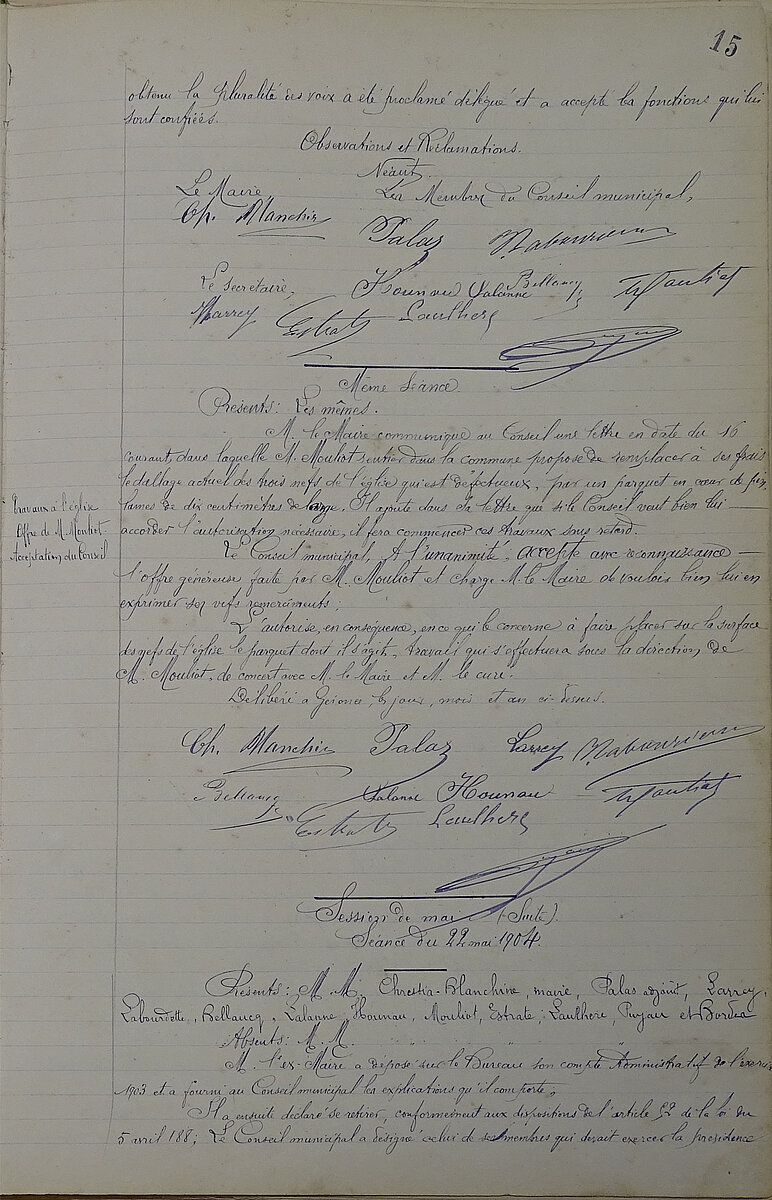 15
obtenu la pluralité des voix a été proclamé délégué et a accepté les fonctions qui lui
sont confiées.
Observations et Réclamations.
Néant.
Le Maire, Les Membres du Conseil municipal,
Ch. Blanchine Palas
Le secrétaire, Hounau Lalanne Bellaucq
Larrey Estrate Laulhere
Même Séance
Présents: Les mêmes.
M. le Maire communique au Conseil une lettre en date du 16
courant, dans laquelle M. Mouliot rentier dans la commune propose de remplacer à ses frais
le dallage actuel des trois nefs de l'église qui est défectueux, par un parquet en cœur de pin,
Travaux à l'église
Offre de M. Mouliot.
Acceptation du Conseil
lames de dix centimètres de large. Il ajoute dans sa lettre que si le Conseil veut bien lui
accorder l'autorisation nécessaire, il fera commencer ces travaux sans retard.
Le Conseil municipal, A l'unanimité, accepte avec reconnaissance
l'offre généreuse faite par M. Mouliot et charge M. le Maire de vouloir bien lui en
exprimer ses vifs remerciments;
L'autorise, en conséquence, en ce qui le concerne à faire placer sur la surface
des nefs de l'église le parquet dont il s'agit, travail qui s'effectuera sous la direction de
M. Mouliot, de concert avec M. le Maire et M. le curé.
Délibéré a Geaune, les jour, mois et an ci-dessus.
Ch. Blanchine Palas Larrey
Bellaucq Lalanne Hounau
Estrate Laulhere
Session de mai (Suite).
Séance du 22 mai 1904.
Présents: M. M. Chrestia-Blanchine, maire, Palas adjoint, Larrey,
Labourdette, Bellaucq, Lalanne, Hounau, Mouliot, Estrate, Laulhère, Pujau et
Absents: M. M.
M. l'ex-Maire a déposé sur le Bureau son compte Administratif de l'exercice
1903 et a fourni au Conseil municipal les explications qu'il comporte;
Il a ensuite déclaré se retirer, conformément aux dispositions de l'article 52 de la loi du
5 avril 188; Le Conseil municipal a désigné celui de ses membres qui devait exercer la présidence